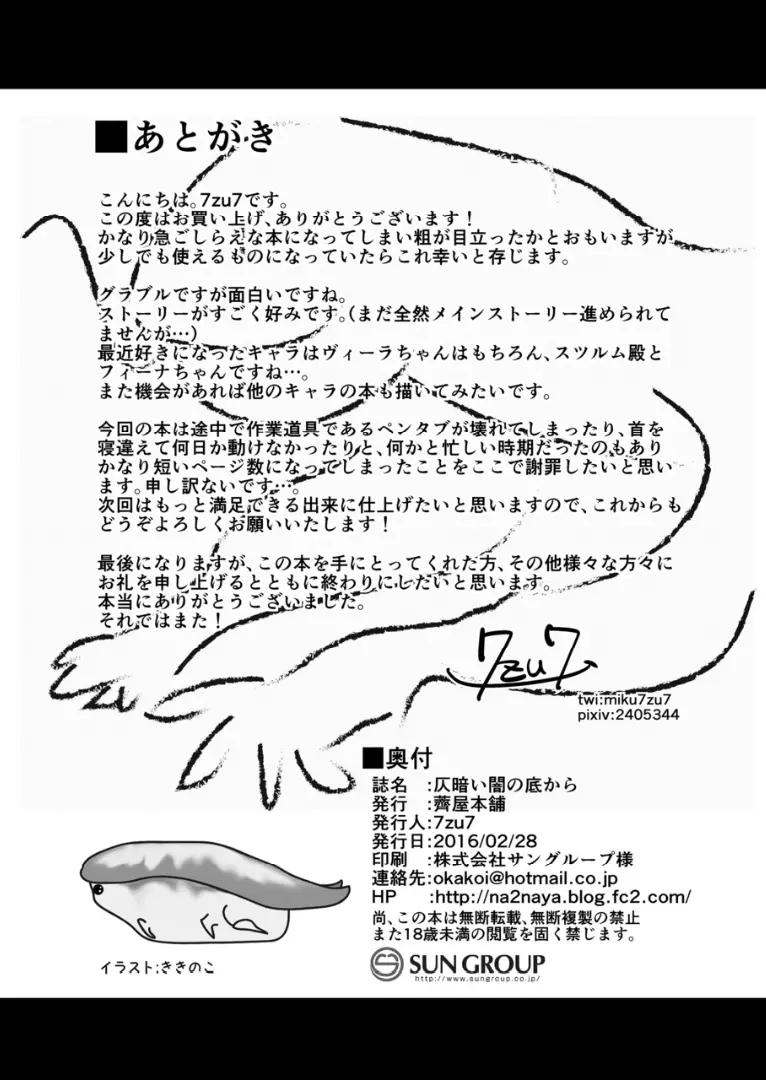 ■あとがき
こんにちは。7zu7です。
この度はお買い上げ、ありがとうございます！
かなり急ごしらえな本になってしまい粗が目立ったかとおもいますが
少しでも使えるものになっていたらこれ幸いと存じます。
グラブルですが面白いですね。
ストーリーがすごく好みです。（まだ全然メインストーリー進められて
ませんが…）
最近好きになったキャラはヴィーラちゃんはもちろん、スツルム殿と
フィーナちゃんですね…。
また機会があれば他のキャラの本も描いてみたいです。
今回の本は途中で作業道具であるペンタブが壊れてしまったり、首を
寝違えて何日か動けなかったりと、何かと忙しい時期だったのもあり
かなり短いページ数になってしまったことをここで謝罪したいと思い
ます。申し訳ないです…。
次回はもっと満足できる出来に仕上げたいと思いますので、これからも
どうぞよろしくお願いいたします！
最後になりますが、この本を手にとってくれた方、その他様々な方々に
お礼を申し上げるとともに終わりにしたいと思います。
本当にありがとうございました。
それではまた！
7zu7
twi:miku7zu7
pixiv:2405344
■奥付
誌名　:仄暗い闇の底から
発行　:薺屋本舗
発行人:7zu7
発行日:2016/02/28
印刷　:株式会社サングループ様
連絡先:okakoi@hotmail.co.jp
HP　:http://na2naya.blog.fc2.com/
尚、この本は無断転載、無断複製の禁止
また18歳未満の閲覧を固く禁じます。
SUN GROUP
http://www.sungroup.co.jp/
イラスト:ききのこ